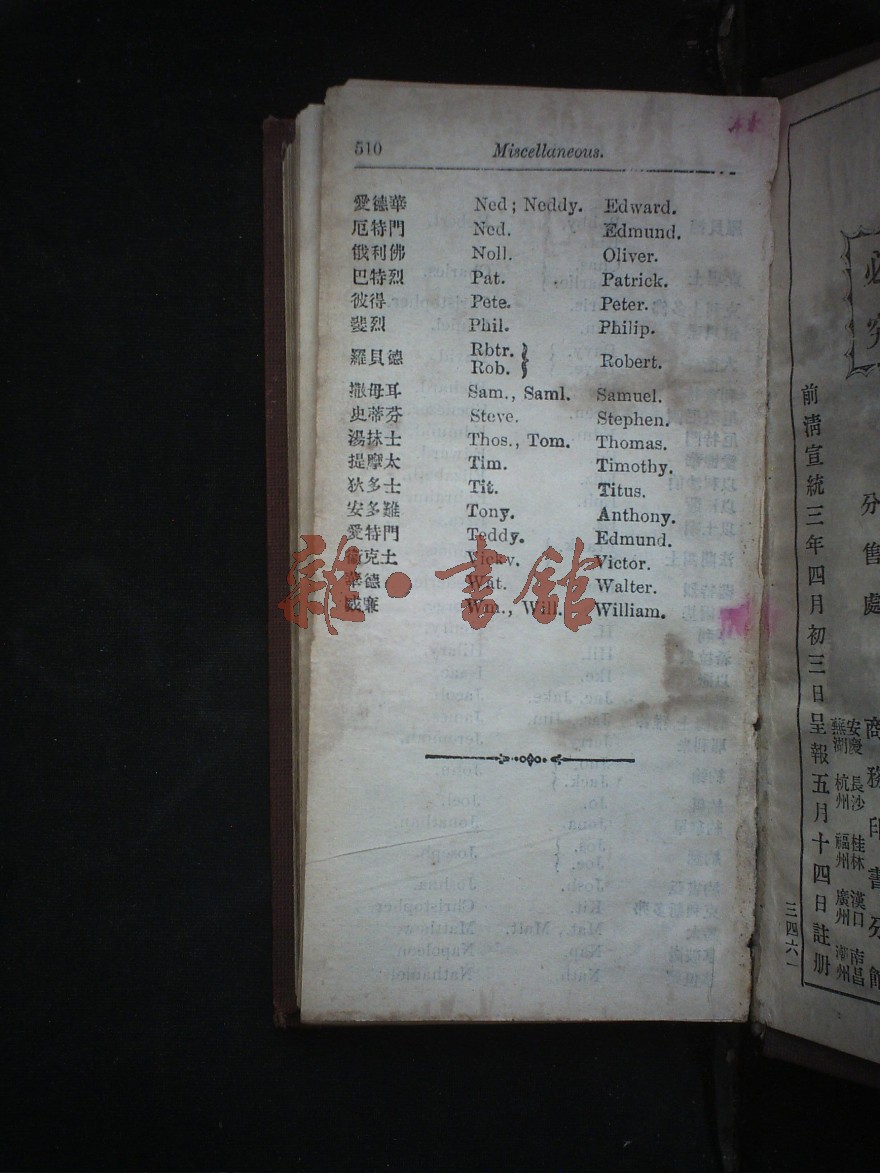 510 Miscellaneous.
愛德華 Ned; Neddy. Edward.
厄特門 Ned. Edmund.
俄利佛 Noll. Oliver.
巴特烈 Pat. Patrick.
彼得 Pete. Peter.
斐烈 Phil. Philip.
羅貝德 Rbtr. Rob. } Robert.
撒母耳 Sam., Saml. Samuel.
史蒂芬 Steve. Stephen.
湯抹士 Thos., Tom. Thomas.
提摩太 Tim. Timothy.
狄多士 Tit. Titus.
安多雖 Tony. Anthony.
愛特門 Teddy. Edmund.
克士 Vicky. Victor.
華德 Wat. Walter.
威廉 Wm., Will. William.
雜·書館
必究
分售處
商務印書分館
安慶 長沙 桂林 漢口 南昌
蕪湖 杭州 福州 廣州 潮州
前淸宣統三年四月初三日呈報五月十四日註册
三四六一